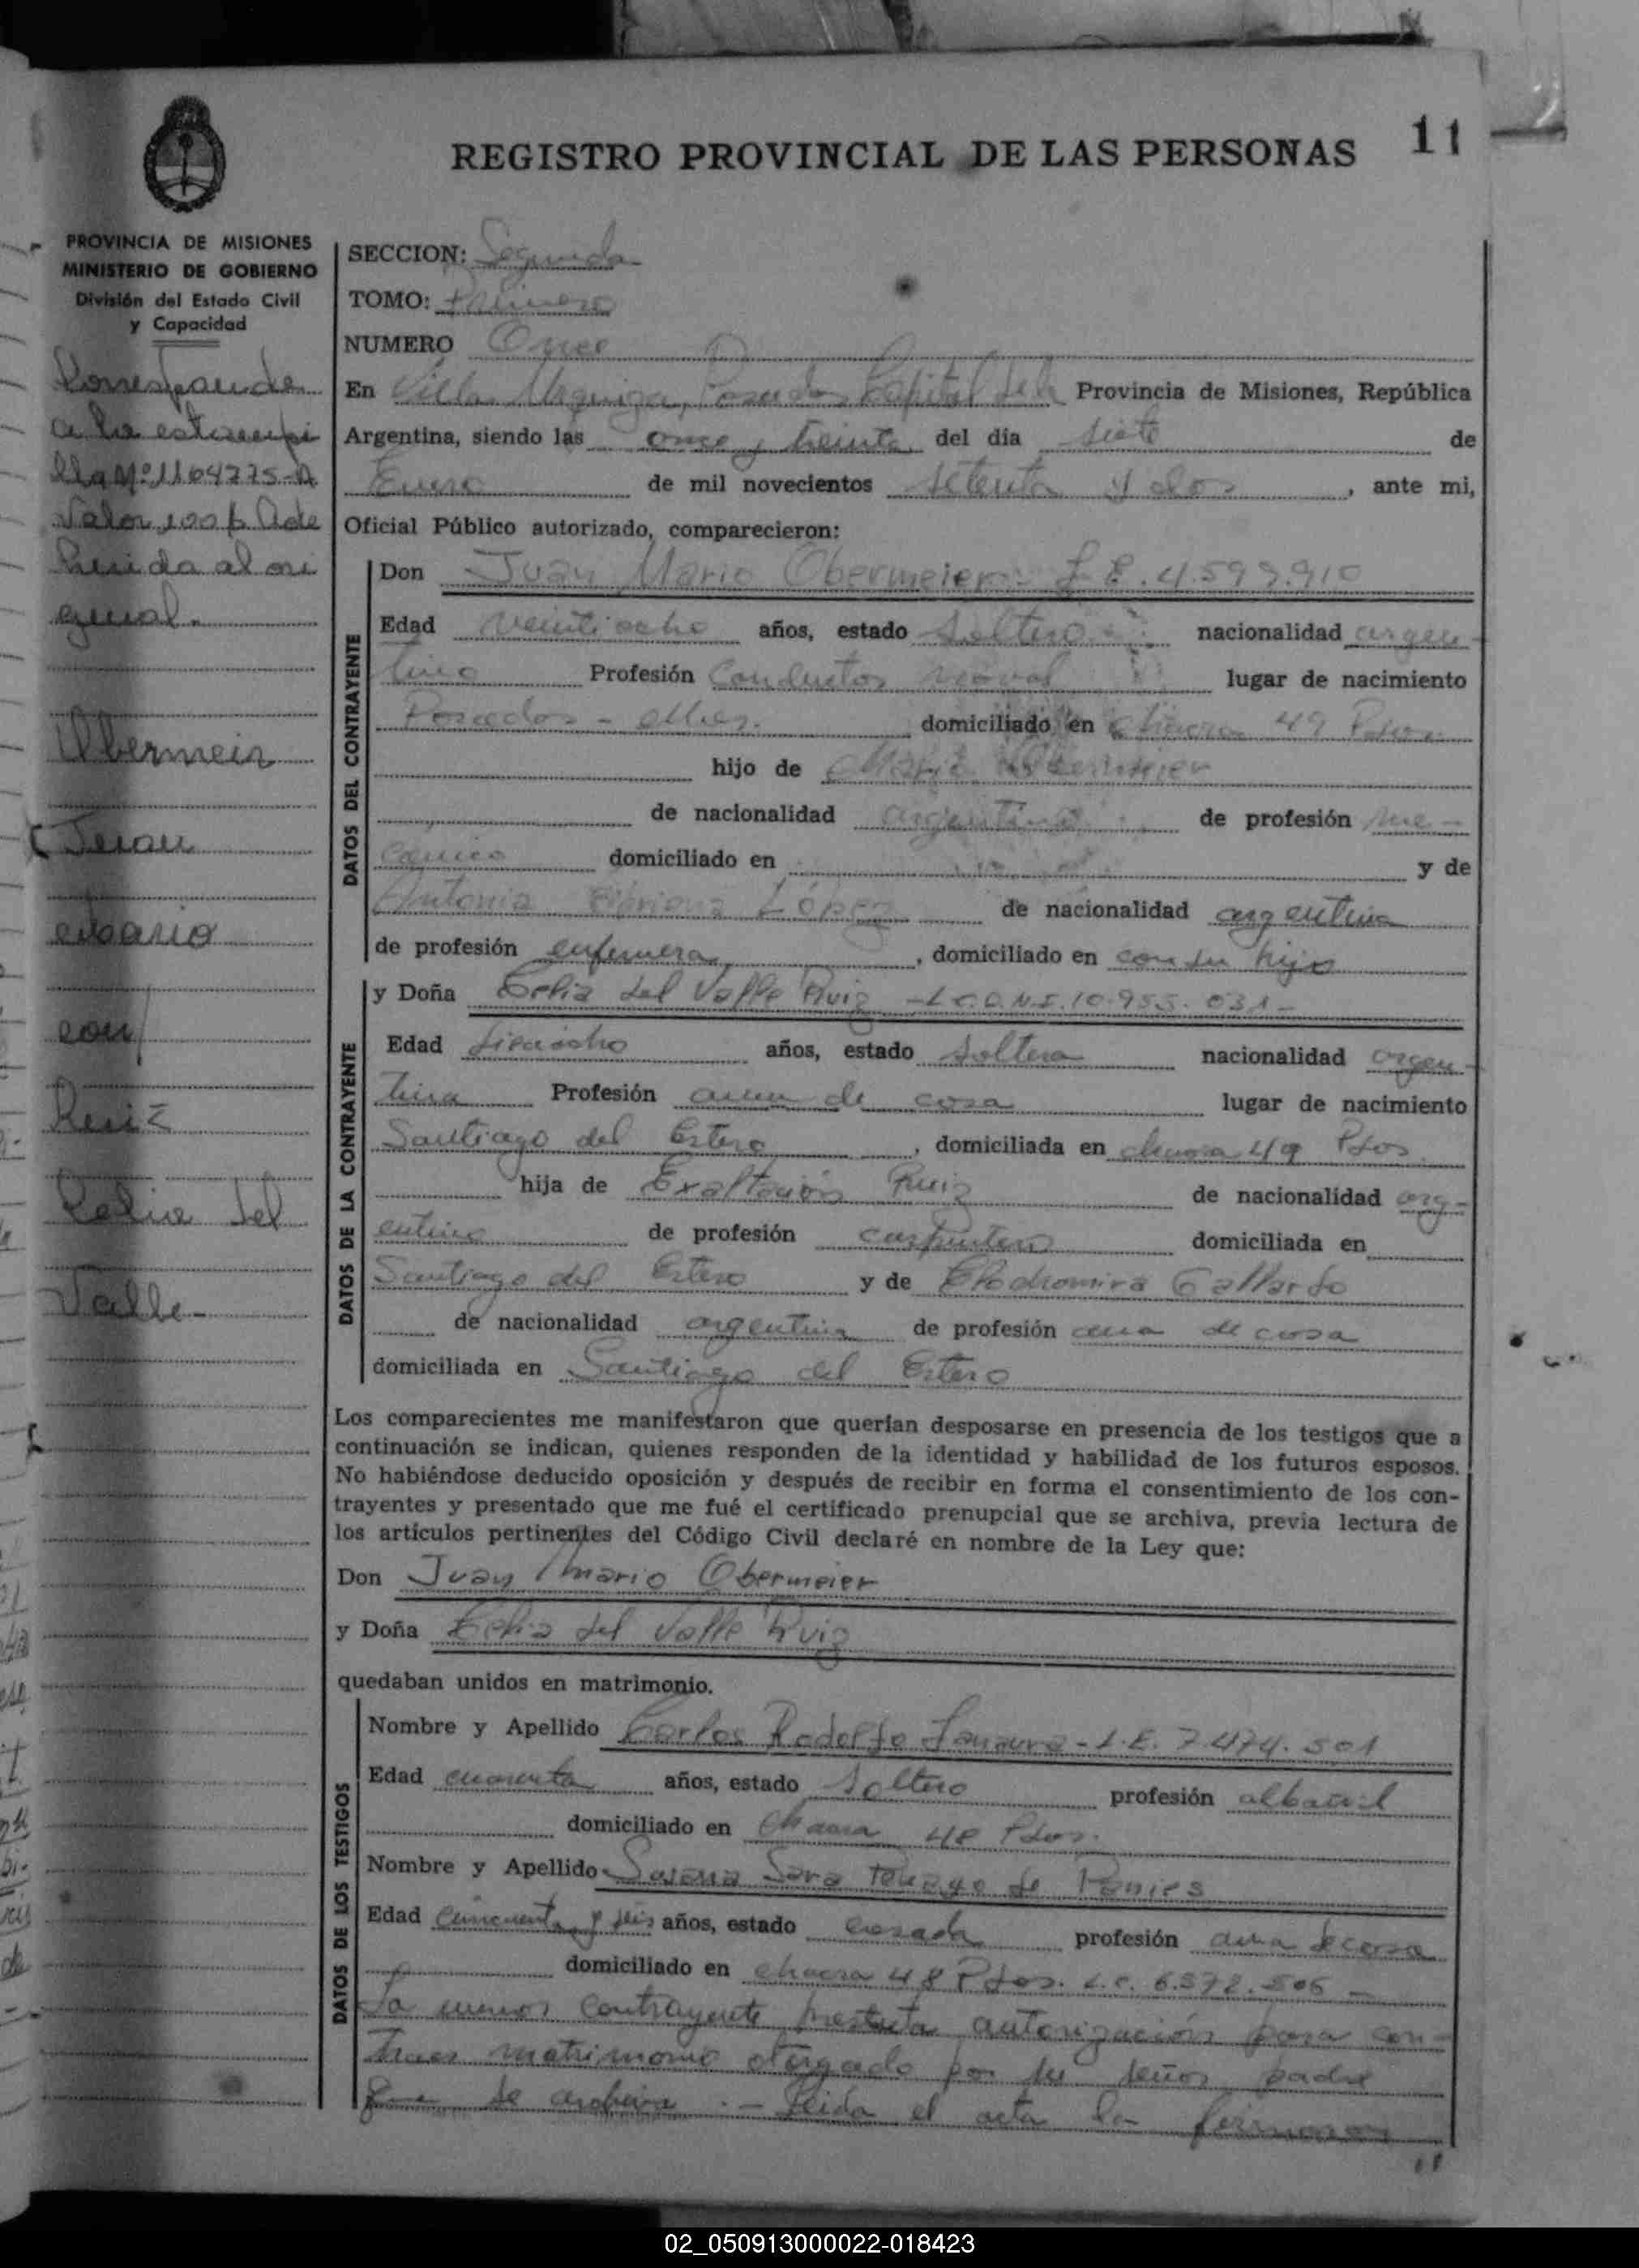 REGISTRO PROVINCIAL DE LAS PERSONAS 11
PROVINCIA DE MISIONES
MINISTERIO DE GOBIERNO
División del Estado Civil
y Capacidad
Corresponde
a la estampi
lla Nº 1104275-A
Valor 100 $ Ade
herida al ori
ginal.
Obermeier
Juan
Mario
con
Ruiz
Celia del
Valle
SECCION: Segunda
TOMO: Primero
NUMERO Once
En Villa Urquiza, Posadas Capital de la Provincia de Misiones, República
Argentina, siendo las once y treinta del día siete de
Enero de mil novecientos setenta y dos, ante mi,
Oficial Público autorizado, comparecieron:
DATOS DEL CONTRAYENTE
Don Juan Mario Obermeier - L.E. 4.599.910
Edad veintiocho años, estado soltero nacionalidad argen-
tino Profesión Conductor naval lugar de nacimiento
Posadas - Mnes. domiciliado en chacra 49 Pdas.
hijo de Mario Obermeier
de nacionalidad argentino de profesión me-
cánico domiciliado en y de
Antonia López de nacionalidad argentina
de profesión enfermera, domiciliado en con su hijo
DATOS DE LA CONTRAYENTE
y Doña Celia del Valle Ruiz - L.C.D.N.I. 10.955.031 -
Edad dieciocho años, estado soltera nacionalidad argen-
tina Profesión ama de casa lugar de nacimiento
Santiago del Estero, domiciliada en chacra 49 Pdas.
hija de Exaltación Ruiz de nacionalidad arg-
entino de profesión carpintero domiciliada en
Santiago del Estero y de Clodromira Gallardo
de nacionalidad argentina de profesión ama de casa
domiciliada en Santiago del Estero
Los comparecientes me manifestaron que querían desposarse en presencia de los testigos que a
continuación se indican, quienes responden de la identidad y habilidad de los futuros esposos.
No habiéndose deducido oposición y después de recibir en forma el consentimiento de los con-
trayentes y presentado que me fué el certificado prenupcial que se archiva, previa lectura de
los artículos pertinentes del Código Civil declaré en nombre de la Ley que:
Don Juan Mario Obermeier
y Doña Celia del Valle Ruiz
quedaban unidos en matrimonio.
DATOS DE LOS TESTIGOS
Nombre y Apellido Carlos Rodolfo - L.E. 7.474.501
Edad cuarenta años, estado soltero profesión albañil
domiciliado en chacra 48 Pdas.
Nombre y Apellido Susana Sara de
Edad Cincuenta y seis años, estado casada profesión ama de casa
domiciliado en chacra 48 Pdas. L.C. 6.572.506 -
La menor contrayente presenta autorización para con-
traer matrimonio otorgado por su señor padre
que se archiva .- Leida el acta la firmaron
11
02_050913000022-018423